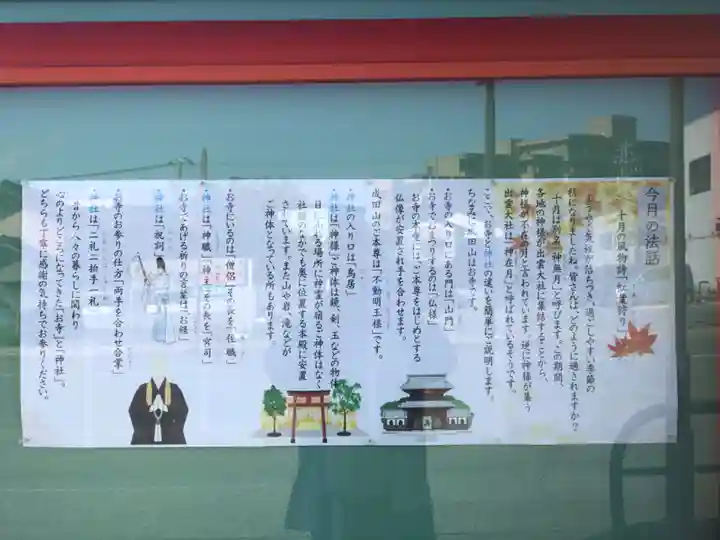 今月の法話
十月の風物詩「紅葉狩り」
気候が落ちつき、過ごしやすい季節の
秋になりましたね。皆さんは、どのように過されますか？
十月は別名「神無月」と呼びます。この期間、
各地の神様が出雲大社に集結することから、
神様が不在の月と言われています。逆に神様が集う
出雲大社は「神在月」と呼ばれているそうです。
ここで、お寺と神社の違いを簡単にご説明します。
ちなみに成田山はお寺です。
・お寺の入り口にある門は「山門」
・お寺でおまつりするのは「仏様」
お寺の本堂にはご本尊をはじめとする
仏像が安置され手を合わせます。
成田山のご本尊は「不動明王様」です。
・神社の入り口は「鳥居」
・神社は「神様」ご神体は鏡、剣、玉などの物体
目に る場所に神霊が宿るご神体はなく
社殿のなかでも奥に位置する本殿に安置
されています。また山や岩、滝などが
ご神体となっている所もあります。
・お寺にいるのは「僧侶」その長を「住職」
・神社は「神職」「神主」その長を「宮司」
・お寺であげる祈りの言葉は「お経」
・神社は「祝詞」
・お寺のお参りの仕方「両手を合わせ合掌」
・神社は「二礼二拍手一礼」
から人々の暮らしに関わり
心のよりどころになってきた「お寺」と「神社」。
どちらも丁寧に感謝の気持ちでお参りください。